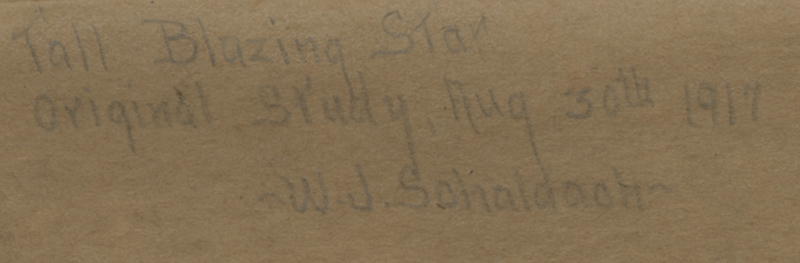 Tall Blazing Star
Original Study, Aug 30th 1917
~W.J. Schaldach~